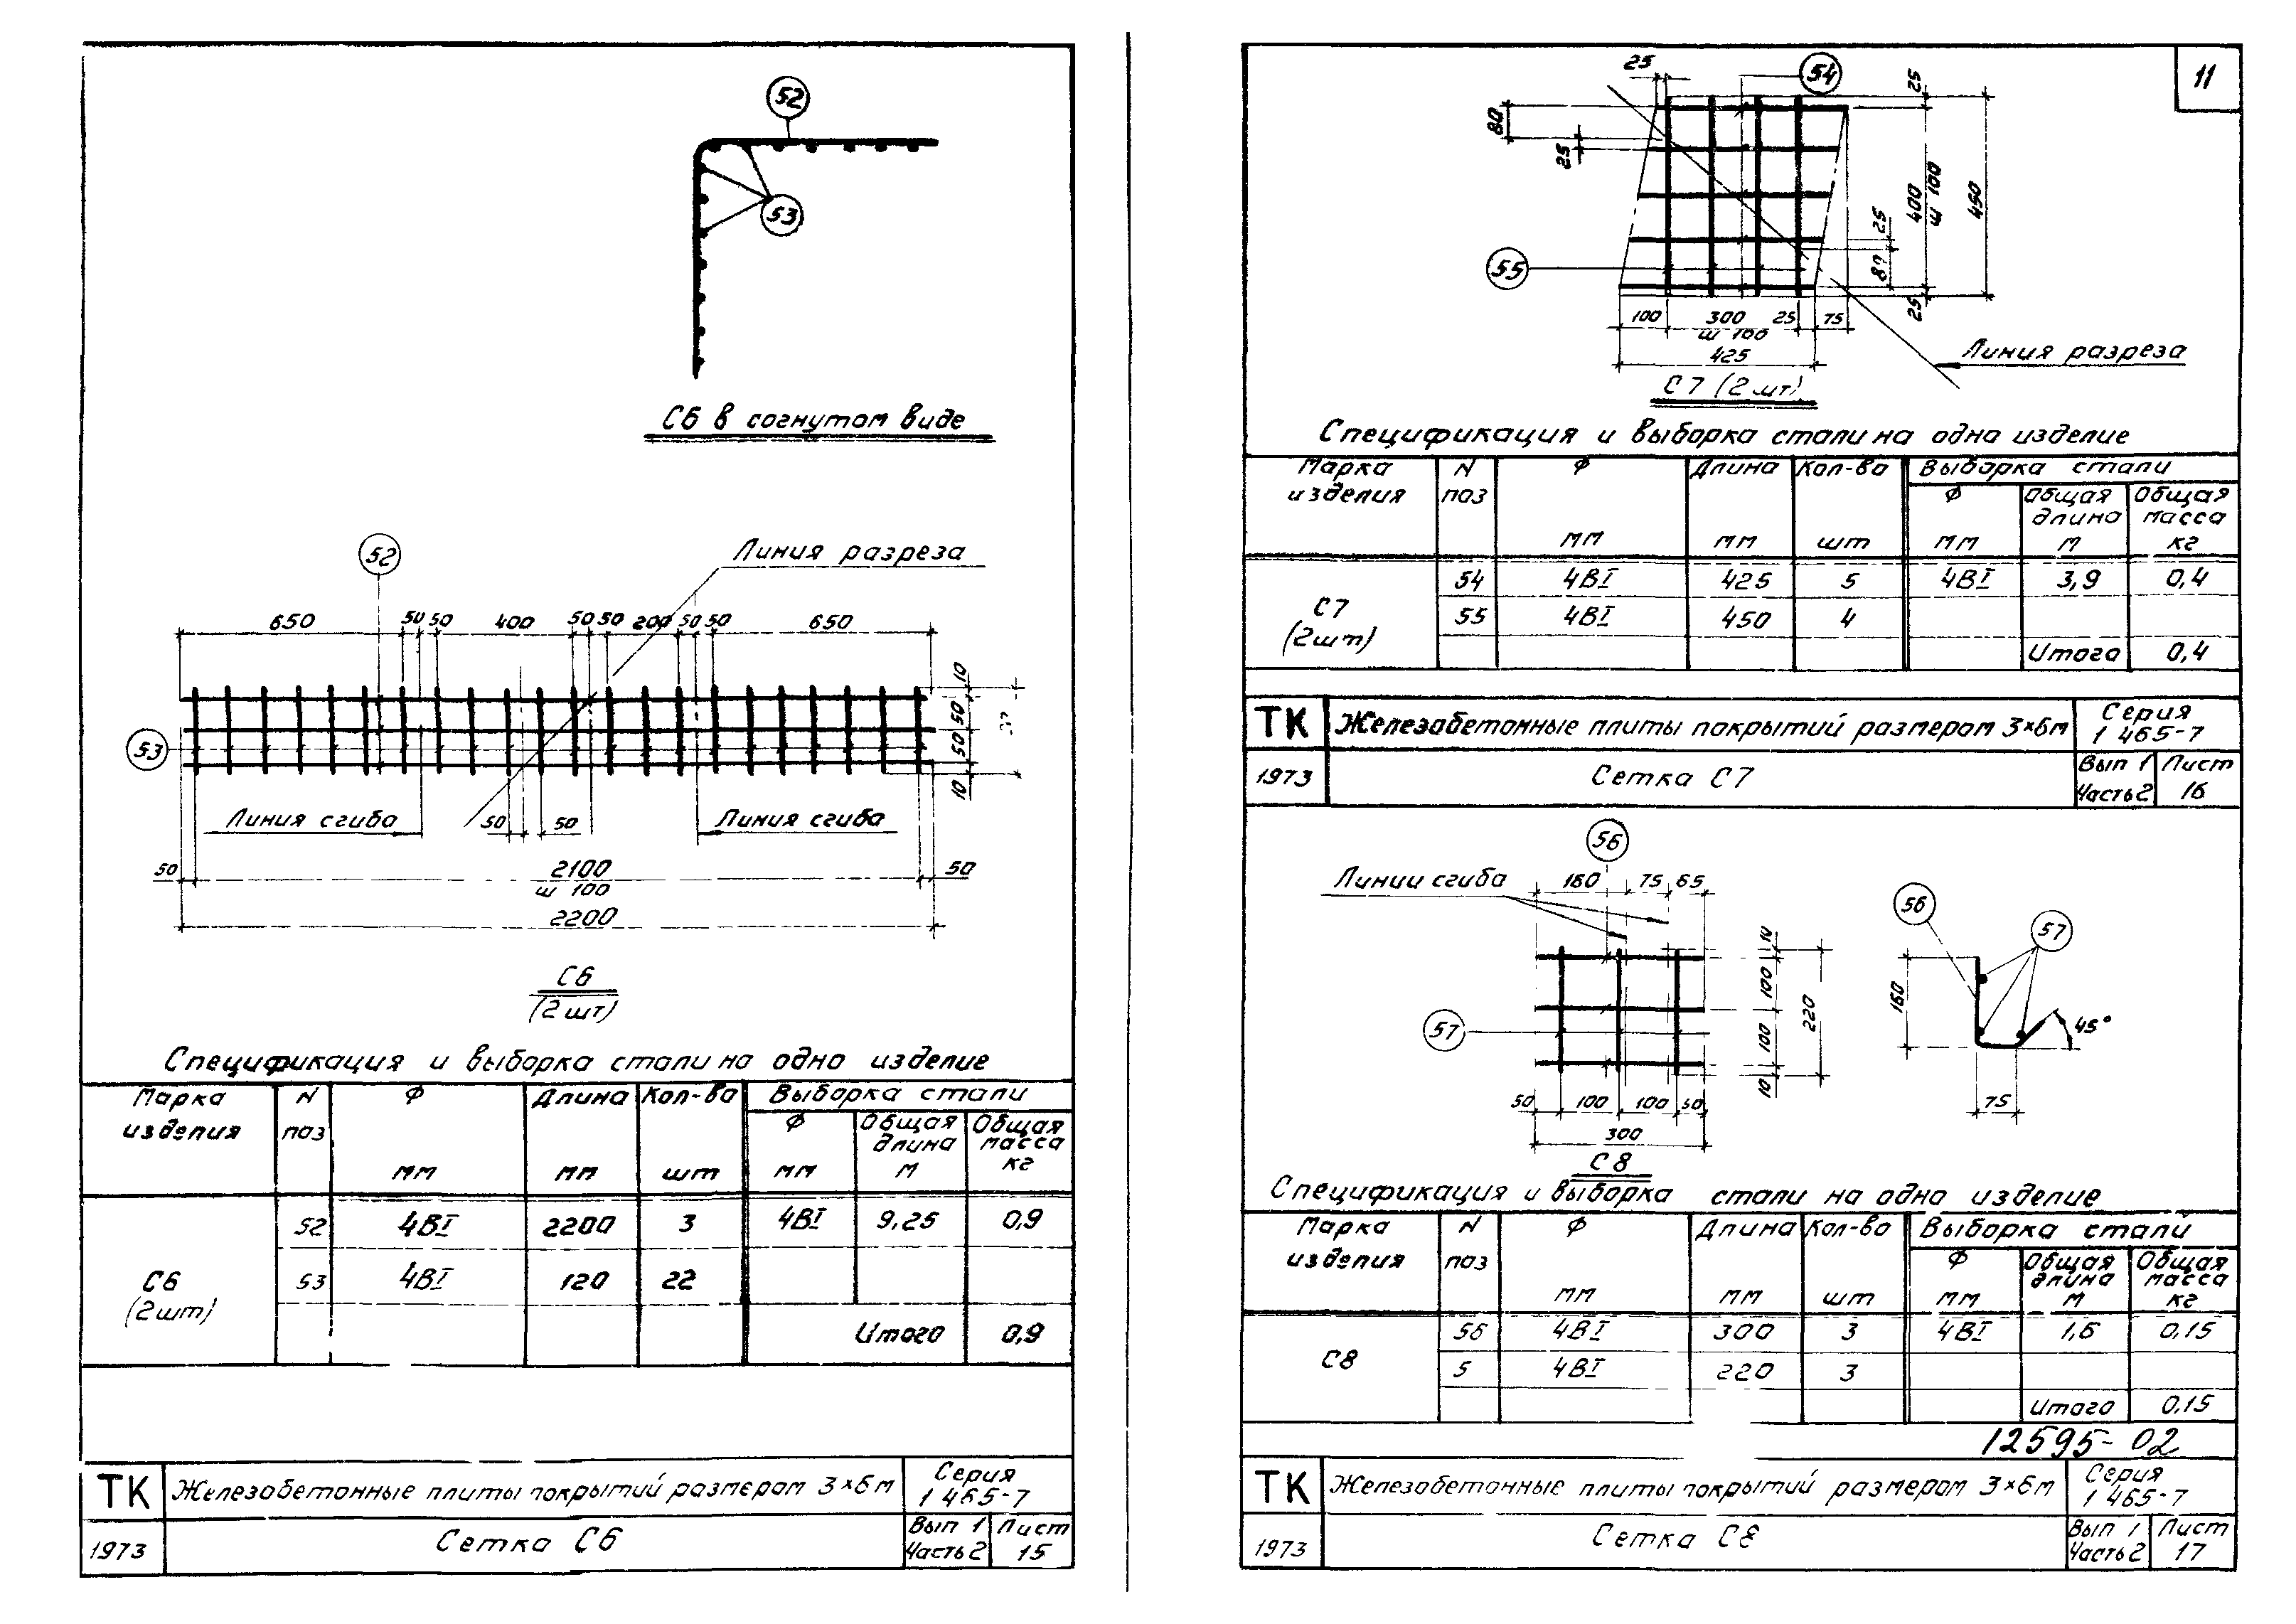 52
53
С6 в согнутом виде
52
Линия разреза
650 50 50 400 50 50 200 50 50 650
10
50
50
10
53
Линия сгиба 50 50 Линия сгиба
50 2100 50
ш 100
2200
С6
(2 шт)
Спецификация и выборка стали на одно изделие
Марка изделия N поз Ф мм Длина мм Кол-во шт Выборка стали
Ф мм Общая длина м Общая масса кг
52 4ВI 2200 3 4ВI 9,25 0,9
С6 (2шт) 53 4ВI 120 22
Итого 0,9
ТК Железобетонные плиты покрытий размером 3×6м Серия 1 465-7
1973 Сетка С6 Вып 1 Часть 2 Лист 15
11
25 54 25
80
25
400
ш 100
450
25
80
25
55
100 300 25 75
ш 100
425
Линия разреза
С7 (2 шт)
Спецификация и выборка стали на одно изделие
Марка изделия N поз Ф мм Длина мм Кол-во шт Выборка стали
Ф мм Общая длина м Общая масса кг
54 4ВI 425 5 4ВI 3,9 0,4
С7 (2шт) 55 4ВI 450 4
Итого 0,4
ТК Железобетонные плиты покрытий размером 3×6м Серия 1 465-7
1973 Сетка С7 Вып 1 Часть 2 Лист 16
56
Линии сгиба 160 75 65
10
100
100
10
220
57
50 100 100 50
300
С8
56
57
160
45°
75
Спецификация и выборка стали на одно изделие
Марка изделия N поз Ф мм Длина мм Кол-во шт Выборка стали
Ф мм Общая длина м Общая масса кг
56 4ВI 300 3 4ВI 1,6 0,15
С8 5 4ВI 220 3
Итого 0,15
12595-02
ТК Железобетонные плиты покрытий размером 3×6м Серия 1 465-7
1973 Сетка С8 Вып 1 Часть 2 Лист 17